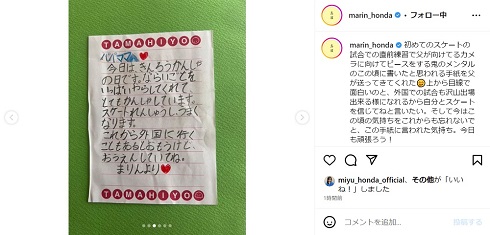 TAMAHIYO
パパママ
今日は、きんろうかんしゃ
の日です。ならいごとを
いっぱいやらしてくれて
とてもかんしゃしています。
スケートれんしゅうしてつよく
なります。
これから外国に行く
こともあるとおもうけど、
おうえんしていてね。
まりんより
TAMAHIYO
marin_honda • フォロー中
marin_honda 初めてのスケートの
試合での直前練習で父が向けてるカメ
ラに向けてピースをする鬼のメンタル
のこの頃に書いたと思われる手紙を父
が送ってきてくれた 上から目線で
面白いのと、外国での試合も沢山出場
出来る様になれるから自分とスケート
を信じてねと言いたい。そして今はこ
の頃の気持ちをこれからも忘れないで
と、この手紙に言われた気持ち。今日も
頑張ろう！
miyu_honda_official、その他が「いい
ね！」しました
1時間前
コメントを追加...
投稿する